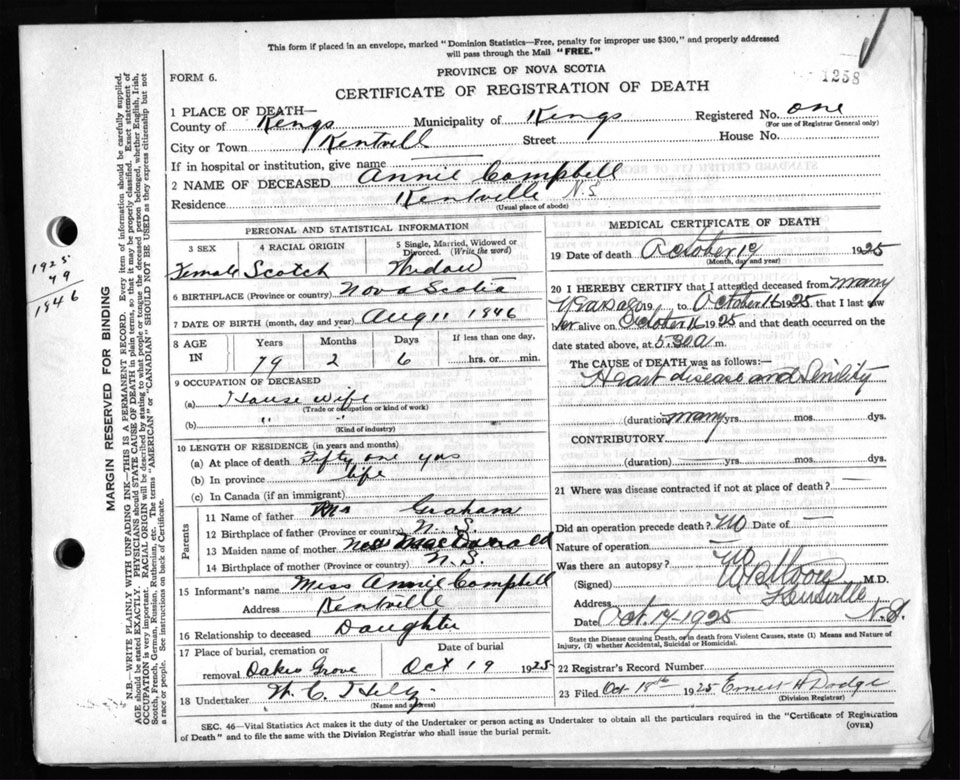 This form if placed in an envelope, marked "Dominion Statistics—Free, penalty for improper use $300," and properly addressed
will pass through the Mail "FREE."
FORM 6.
PROVINCE OF NOVA SCOTIA
1258
CERTIFICATE OF REGISTRATION OF DEATH
1 PLACE OF DEATH—
County of Kings Municipality of Kings Registered No. one
(For use of Registrar General only)
City or Town Kentvill Street House No.
If in hospital or institution, give name
2 NAME OF DECEASED Annie Campbell
Residence Kentville N.S.
(Usual place of abode)
PERSONAL AND STATISTICAL INFORMATION
3 SEX 4 RACIAL ORIGIN 5 Single, Married, Widowed or Divorced. (Write the word)
Female Scotch Widow
6 BIRTHPLACE (Province or country) Nova Scotia
7 DATE OF BIRTH (month, day and year) Aug 11 1846
8 AGE IN Years Months Days If less than one day,
79 2 6 hrs. or min.
9 OCCUPATION OF DECEASED
(a) House wife
(Trade or occupation or kind of work)
(b) " "
(Kind of industry)
10 LENGTH OF RESIDENCE (in years and months)
(a) At place of death Fifty one yrs
(b) In province life
(c) In Canada (if an immigrant)
Parents
11 Name of father Graham
12 Birthplace of father (Province or country) N.S.
13 Maiden name of mother MacDonald
14 Birthplace of mother (Province or country) N.S.
15 Informant's name Miss Annie Campbell
Address Kentville
16 Relationship to deceased Daughter
17 Place of burial, cremation or Date of burial
removal Oakes Grove Oct 19 1925
18 Undertaker W. C.
(Name and address)
MEDICAL CERTIFICATE OF DEATH
19 Date of death October 19 1925
(Month, day and year)
20 I HEREBY CERTIFY that I attended deceased from many
years ago 19 to October 16 1925 that I last saw
her alive on October 16 1925 and that death occurred on the
date stated above, at 5.30 a m.
The CAUSE OF DEATH was as follows:—
Heart disease and Senility
(duration) many yrs. mos. dys.
CONTRIBUTORY
(duration) yrs. mos. dys.
21 Where was disease contracted if not at place of death? —
Did an operation precede death? No Date of —
Nature of operation —
Was there an autopsy?
(Signed) Moore M.D.
Address Kentville N.S.
Date Oct. 17 1925
State the Disease causing Death, or in death from Violent Causes, state (1) Means and Nature of
Injury, (2) whether Accidental, Suicidal or Homicidal.
22 Registrar's Record Number
23 Filed Oct 18th 1925 Ernest H Dodge
(Division Registrar)
SEC. 46—Vital Statistics Act makes it the duty of the Undertaker or person acting as Undertaker to obtain all the particulars required in the "Certificate of Registration
of Death" and to file the same with the Division Registrar who shall issue the burial permit.
(OVER)
1925
79
1846
MARGIN RESERVED FOR BINDING
N.B.—WRITE PLAINLY WITH UNFADING INK—THIS IS A PERMANENT RECORD. Every item of information should be carefully supplied.
AGE should be stated EXACTLY. PHYSICIANS should STATE CAUSE OF DEATH in plain terms, so that it may be properly classified. Exact statement of
OCCUPATION is very important. RACIAL ORIGIN will be described by stating to what people or tongue the deceased person belonged, whether English, Irish,
Scotch, French, German, Russian, Ruthenian, etc. The terms "AMERICAN" or "CANADIAN" SHOULD NOT BE USED as they express citizenship but not
a race or people. See instructions on back of Certificate.